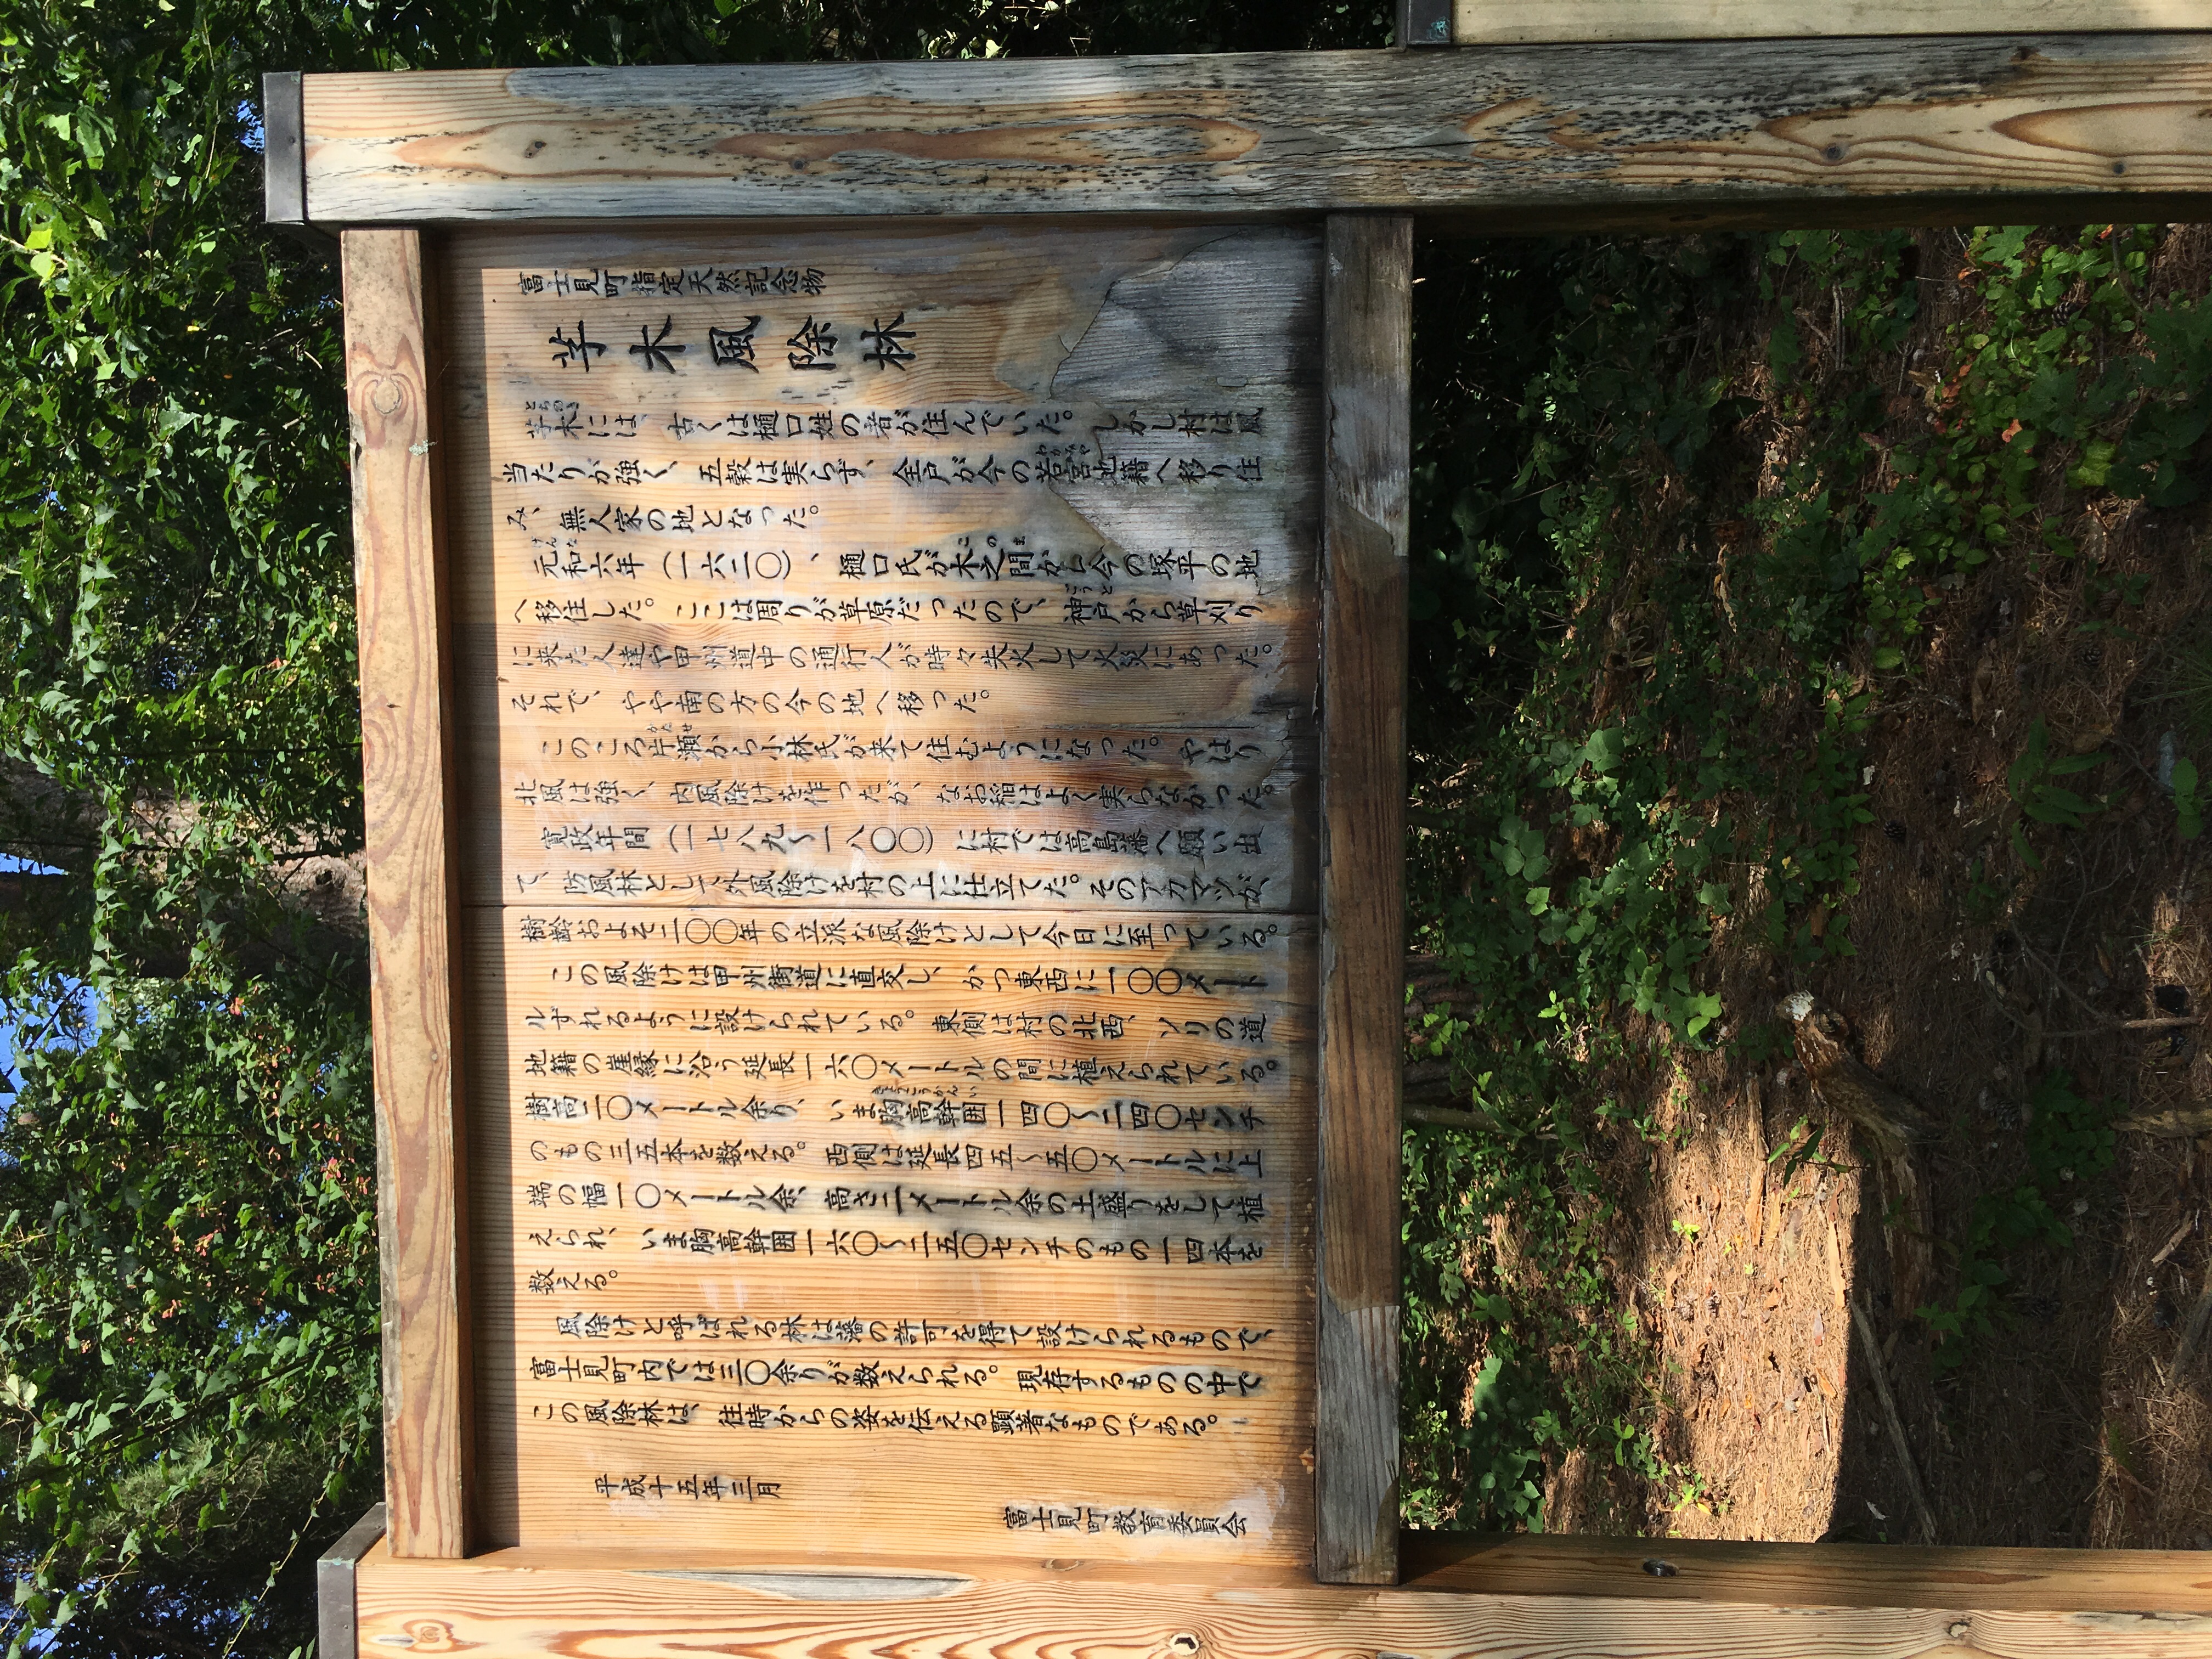 富士見町指定天然記念物
芓木風除林
芓木には、古くは樋口姓の者が住んでいた。しかし村は風
とちのき
当たりが強く、五穀は実らず、全戸が今の若宮地籍へ移り住
わかみや
み、無人家の地となった。
元和六年（一六二〇）、樋口氏が木之間から今の塚平の地
げんな
このま
へ移住した。ここは周りが草原だったので、神戸から草刈り
ごうど
に来た人達や甲州道中の通行人が時々失火して火災にあった。
それで、やや南の方の今の地へ移った。
このころ片瀬から小林氏が来て住むようになった。やはり
かたせ
北風は強く、内風除けを作ったが、なお稲はよく実らなかった。
寛政年間（一七八九〜一八〇〇）に村では高島藩へ願い出
て、防風林として外風除けを村の上に仕立てた。そのアカマツが、
樹齢およそ二〇〇年の立派な風除けとして今日に至っている。
この風除けは甲州街道に直交し、かつ東西に一〇〇メート
ルずれるように設けられている。東側は村の北西、ソリの道
地籍の崖縁に沿う延長一六〇メートルの間に植えられている。
樹高二〇メートル余り、いま胸高幹囲一四〇〜二四〇センチ
きょうこうかんい
のもの三五本を数える。西側は延長四五〜五〇メートルに上
端の幅一〇メートル余、高さ二メートル余の土盛りをして植
えられ、いま胸高幹囲一六〇〜二五〇センチのもの一四本を
数える。
風除けと呼ばれる林は藩の許可を得て設けられるもので、
富士見町内では三〇余りが数えられる。現存するものの中で
この風除林は、往時からの姿を伝える顕著なものである。
平成十五年三月
富士見町教育委員会